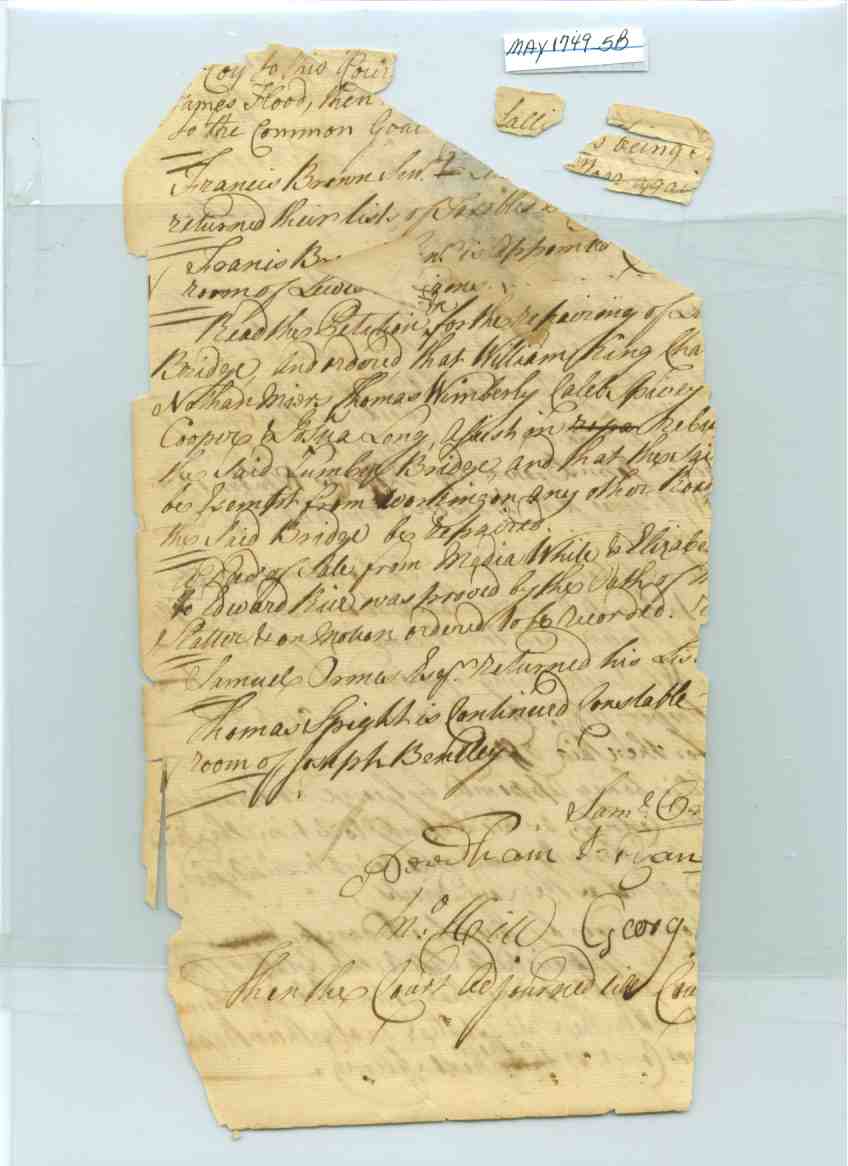 MAY 1749 5B
to this Cour
James Hood, then
to the Common Goal
Salli
s being
again
Francis Brown Sen.r &
returned their lists of Taxables
Franis Br is appointed
room of Lewis
Read the Petition for the repairing of
Bridge, and ordered that William King Cha
Nathan Miers Thomas Wimberly Caleb Spivey
Cooper & Josua Long, assist in repa Rebu
the Said Cumbo Bridge, and that they Sai
be Exempt from working on any other Road
the Said Bridge be repaired.
A Deed of Sale from Media White & Elizabe
to Edward Rice was proved by the Oath of
& on Motion ordered to be recorded.
Samuel Ormes Esq.r returned his Lis
Thomas Spight is Continued Constable
room of Joseph Benttley
Sam.l
Needham Bryan
Jn.o Hill Georg
Then the Court Adjourned till Cou